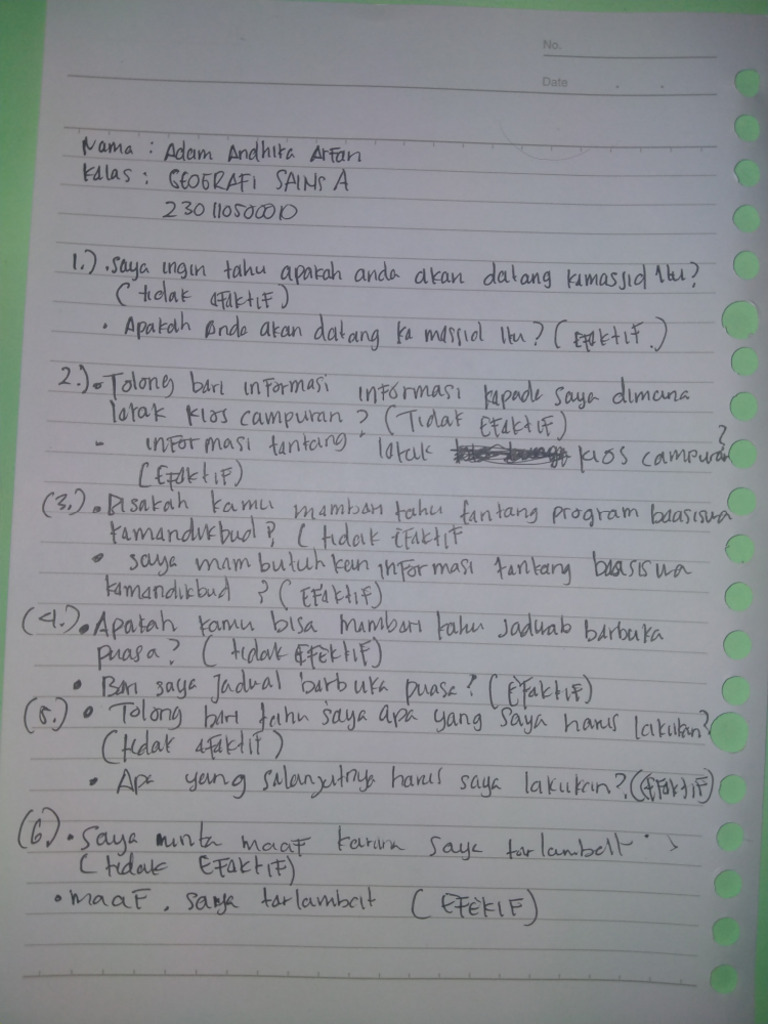 No.
Date
Nama : Adam Andhika Arfan
Kalas : GEOGRAFI SAINS A
230110500010
1.) . Saya ingin tahu apakah anda akan datang kamassid itu?
( tidak EfaktiF)
• Apakah Anda akan datang ka massid itu? ( EfaktiF.)
2.) • Tolong bari informasi informasi kapada saya dimana
latak kios campuran ? ( Tidak EfaktiF)
- informasi tantang latak kios campuran ?
( EfaktiF)
(3.) • Bisakah kamu mambari tahu tantang program baasiswa
kamandikbud ? ( tidak EfaktiF
• saya mambutuhkan informasi tantang baasiswa
kamandikbud ? ( EfaktiF)
(4.) • Apakah kamu bisa mambari tahu Jadwab barbuka
puasa ? ( tidak EfektiF)
• Bari saya Jadual barbuka puasa ? ( EfaktiF)
(5.) • Tolong bari tahu saya apa yang saya harus lakukan?
(tidak EfaktiF )
• Apa yang salanjutnya harus saya lakukan ? (EfaktiF)
(6.) • Saya minta maaF karana saya tarlambat
( tidak EfaktiF)
• maaF , saya tarlambat ( EFEKTIF)